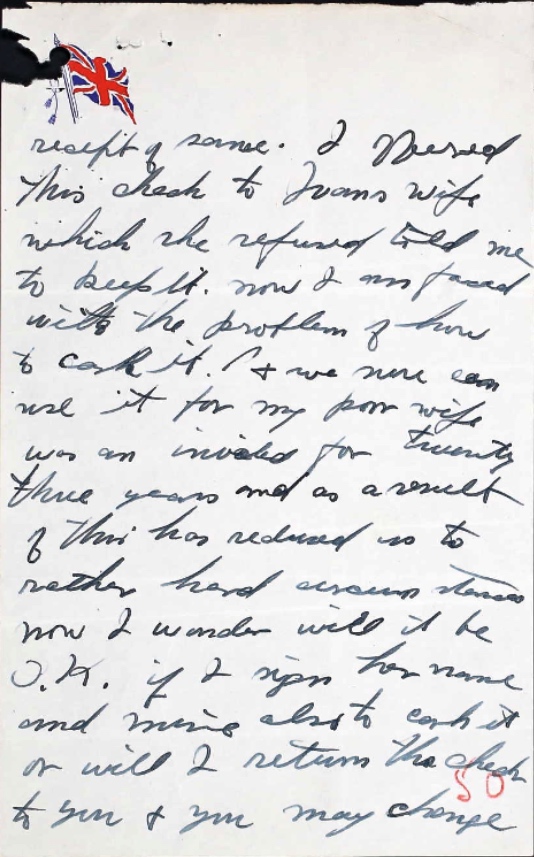 receipt of same. I offered
this check to Ivans wife
which she refused told me
to keep it. now I am faced
with the problem of how
to cash it. & we sure can
use it for my poor wife
was an invalid for twenty
three years and as a result
of this has reduced us to
rather hard circumstances
now I wonder will it be
O.K. if I sign her name
and mine also to cash it
or will I return the check
50
to you & you may change